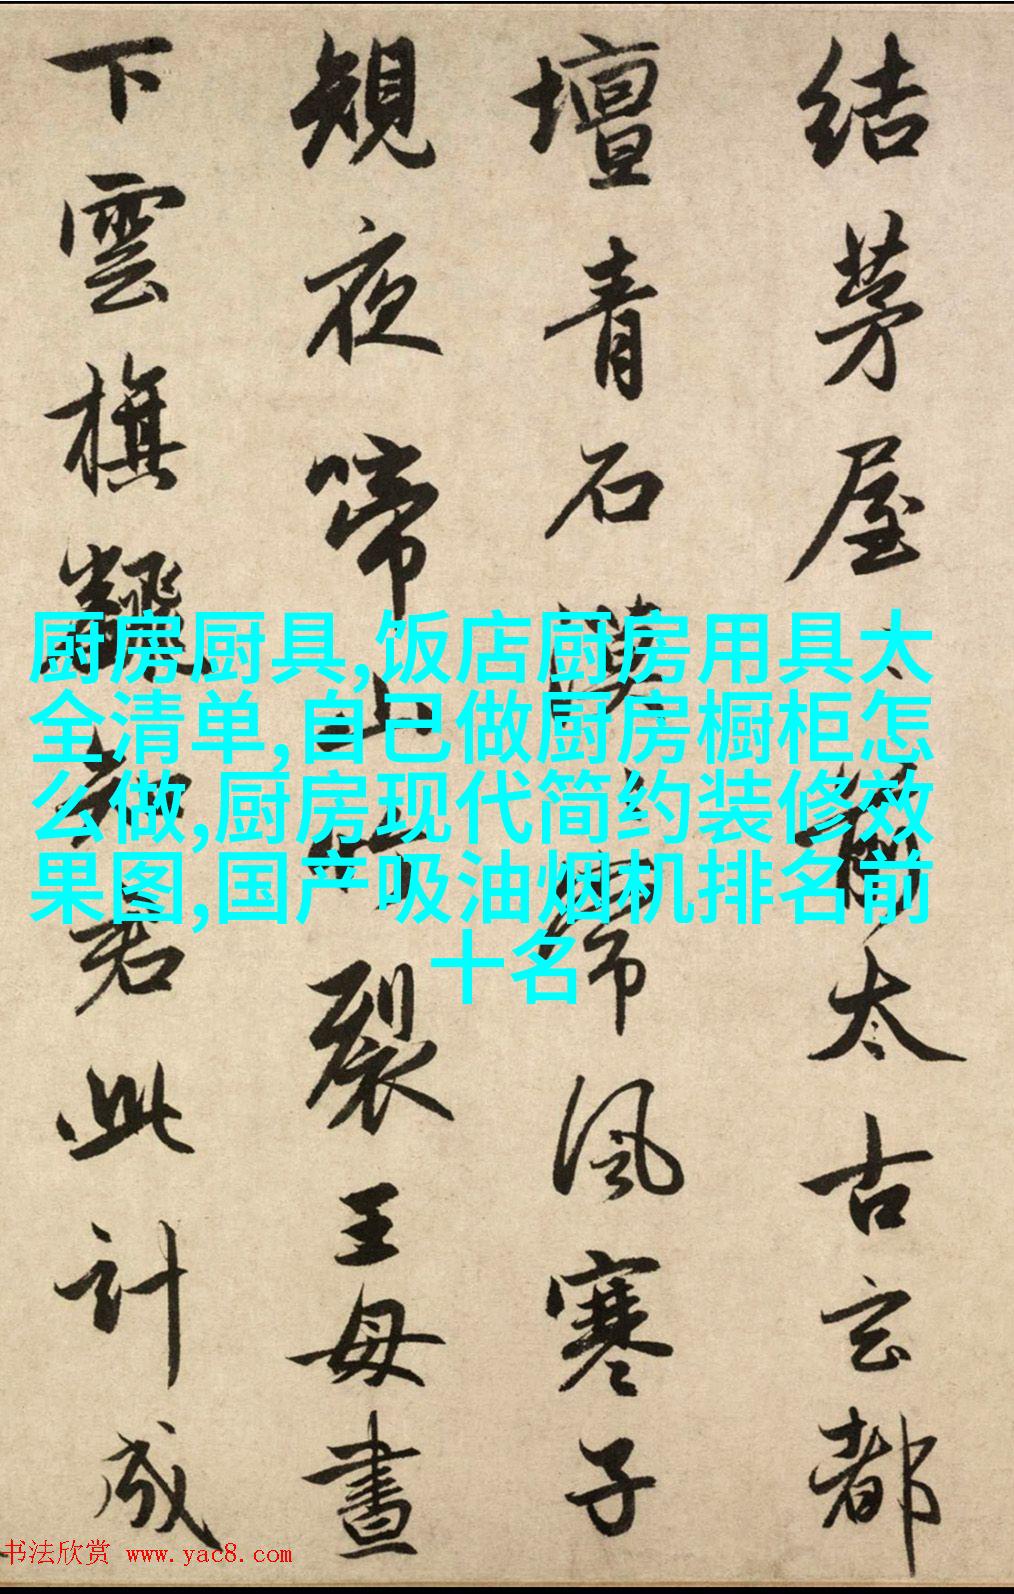 結茅屋〻前太古玄都
壇青石漠〻常風寒子
規夜啼山竹裂王母晝
下雲旗翻知君此計成
厨房厨具,饭店厨房用具大
全清单,自己做厨房橱柜怎
么做,厨房现代简约装修效
果图,国产吸油烟机排名前
十名
书法欣赏 www.yac8.com